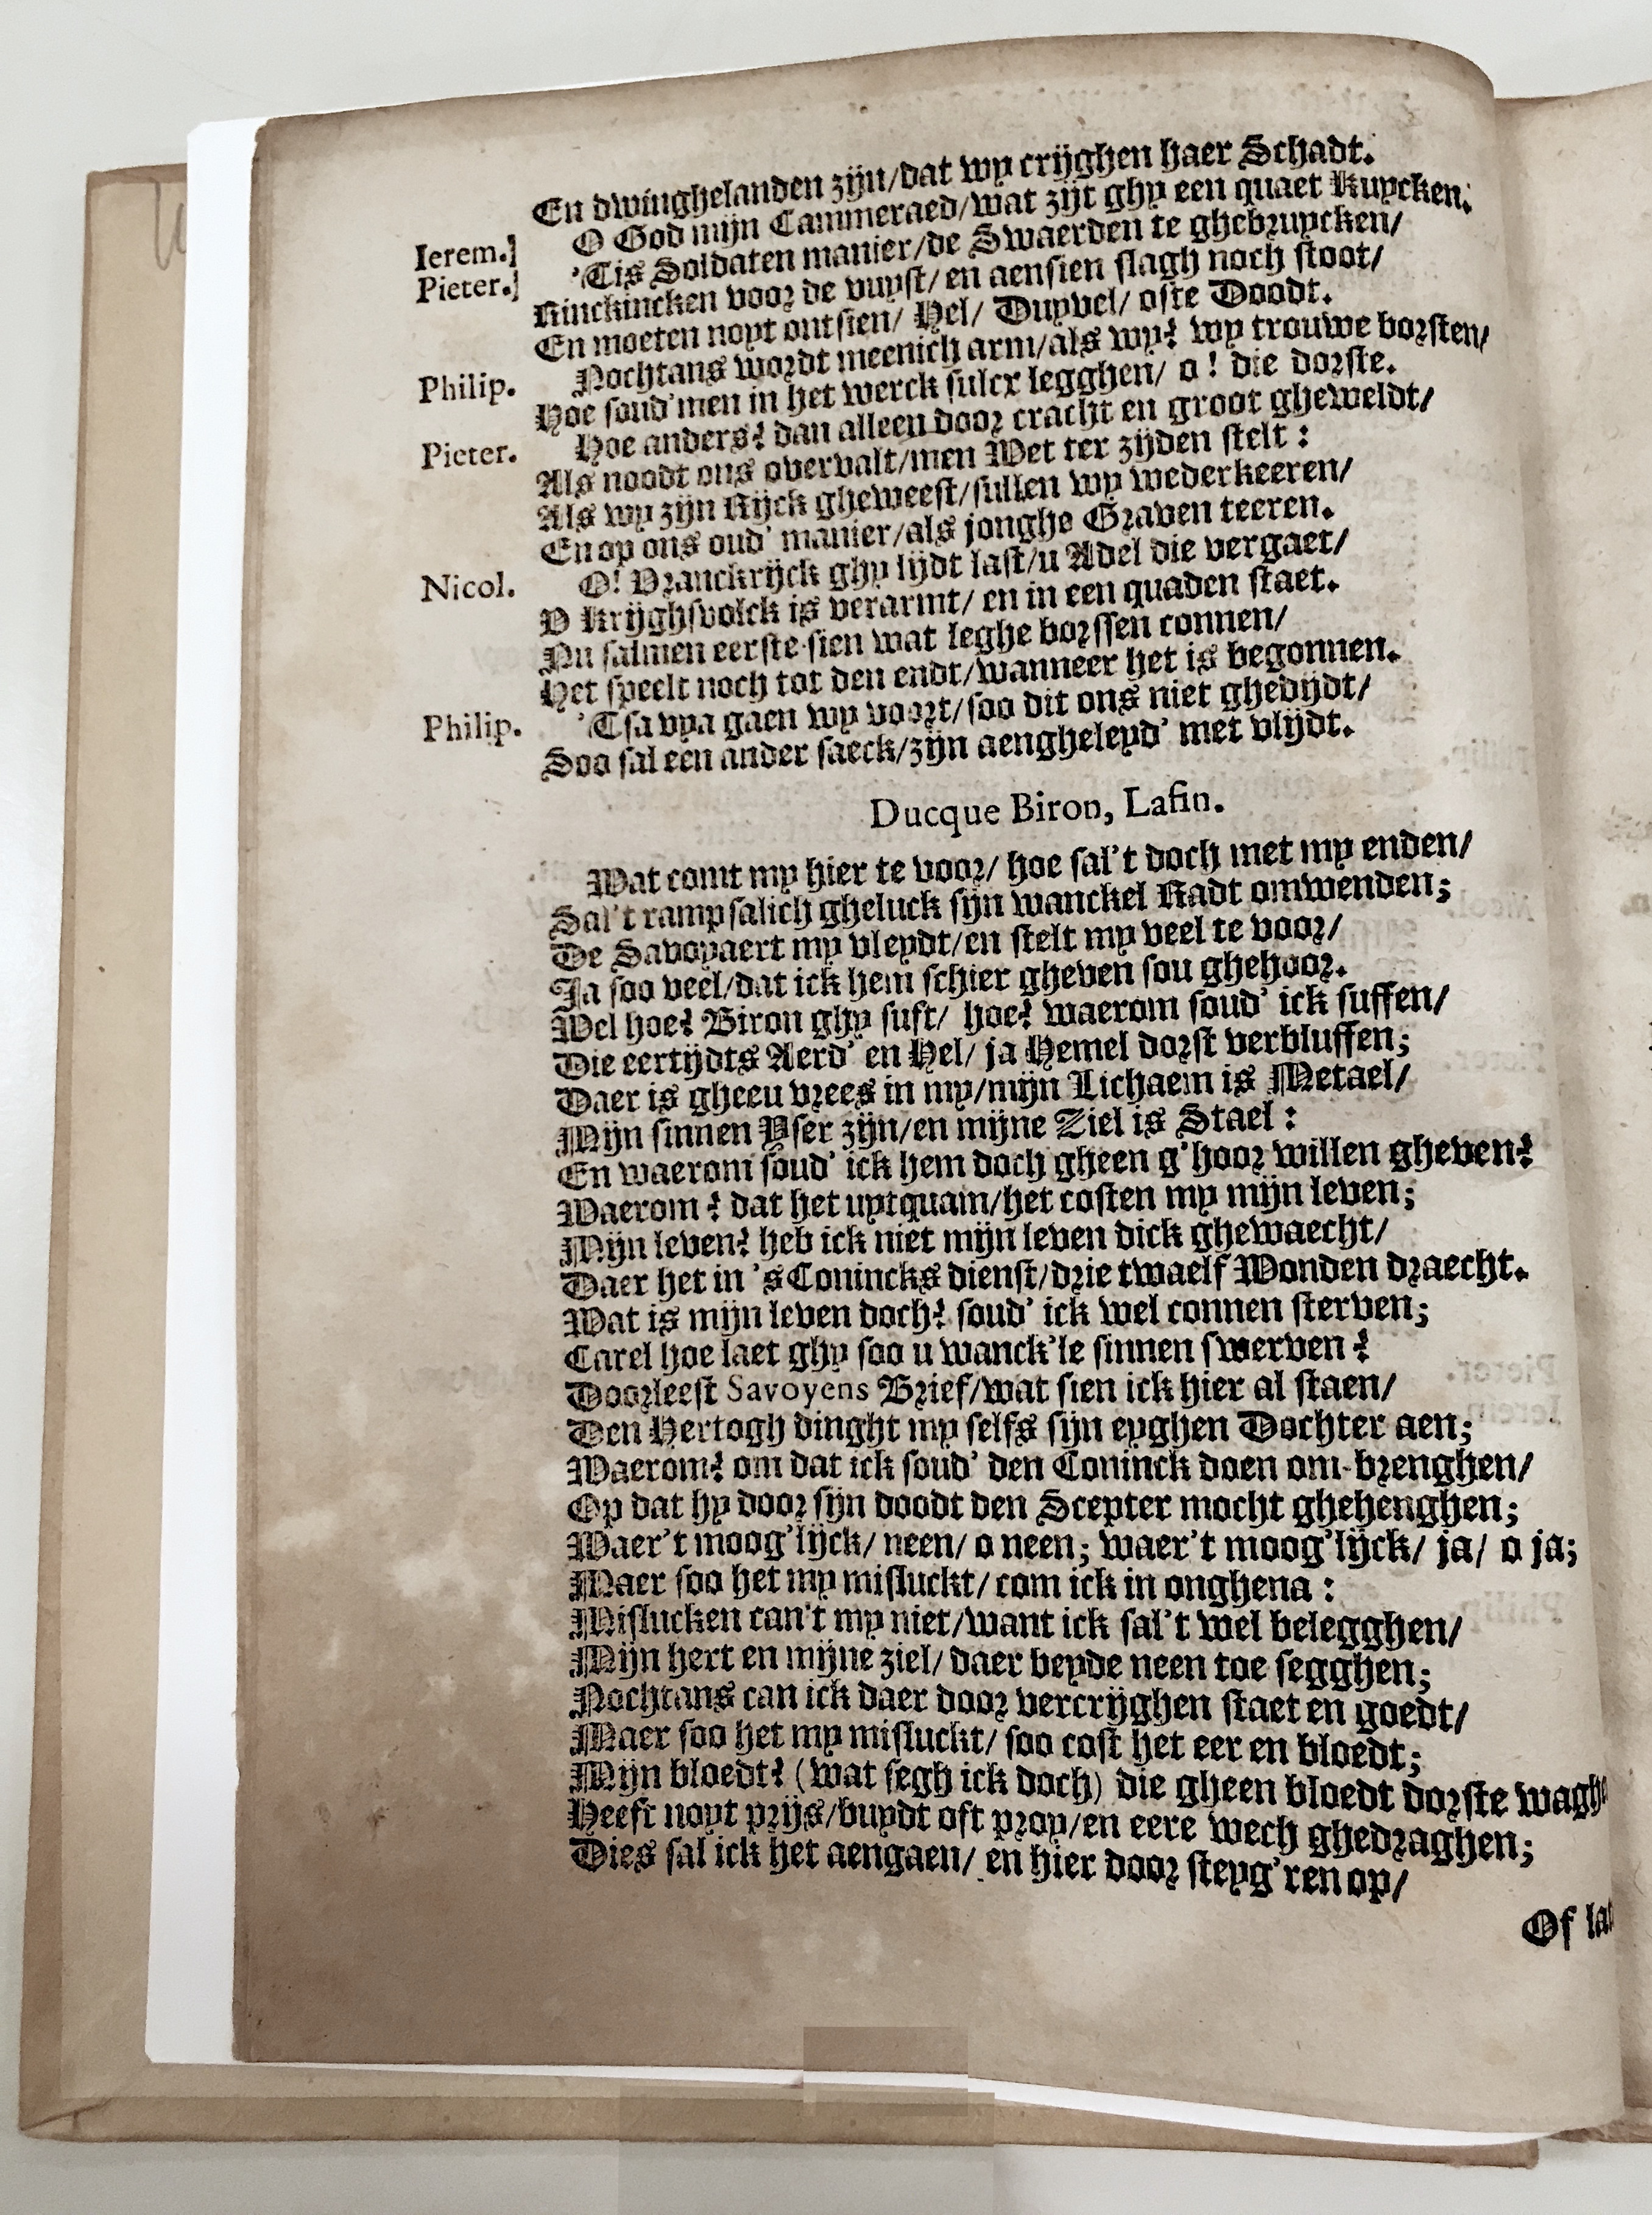 En dwinghelanden zijn/dat wy crijghen haer Schadt.
Ierem.] O God mijn Cammeraed/wat zijt ghy een quaet Kuycken.
Pieter.] 'Tis Soldaten manier/de Swaerden te ghebruycken/
Rinckincken voor de vuyst/en aensien slagh noch stoot/
En moeten noyt ontsien/ Hel/ Duyvel/ ofte Doodt.
Philip. Nochtans wordt meenich arm/als wy? wy trouwe borsten/
Hoe soud' men in het werck sulcx legghen/ o! die dorste.
Pieter. Hoe anders? dan alleen door cracht en groot gheweldt/
Als noodt ons overvalt/men Wet ter zijden stelt:
Als wy zijn Rijck gheweest/sullen wy wederkeeren/
En op ons oud' manier/als jonghe Graven teeren.
Nicol. O! Vranckrijck ghy lijdt last/u Adel die vergaet/
V Krijghsvolck is verarmt/ en in een quaden staet.
Nu salmen eerste sien wat leghe borssen connen/
Het speelt noch tot den endt/wanneer het is begonnen.
Philip. 'Tsa vya gaen wy voort/soo dit ons niet ghedijdt/
Soo sal een ander saeck/zijn aengheleyd' met vlijdt.
Ducque Biron, Lafin.
Wat comt my hier te voor/ hoe sal't doch met my enden/
Sal't rampsalich gheluck sijn wanckel Radt omwenden;
De Savoyaert my vleydt/en stelt my veel te voor/
Ja soo veel/dat ick hem schier gheven sou ghehoor.
Wel hoe? Biron ghy suft/ hoe? waerom soud' ick suffen/
Die eertijdts Aerd' en Hel/ ja Hemel dorst verbluffen;
Daer is gheen vrees in my/mijn Lichaem is Metael/
Mijn sinnen Yser zijn/en mijne Ziel is Stael:
En waerom soud' ick hem doch gheen g'hoor willen gheven?
Waerom? dat het uytquam/het costen my mijn leven;
Mijn leven? heb ick niet mijn leven dick ghewaecht/
Daer het in 's Conincks dienst/drie twaelf Wonden draecht.
Wat is mijn leven doch? soud' ick wel connen sterven;
Carel hoe laet ghy soo u wanck'le sinnen swerven?
Doorleest Savoyens Brief/wat sien ick hier al staen/
Den Hertogh dinght my selfs sijn eyghen Dochter aen;
Waerom? om dat ick soud' den Coninck doen om-brenghen/
Op dat hy door sijn doodt den Scepter mocht ghehenghen;
Waer't moog'lijck/ neen/ o neen; waer't moog'lijck/ ja/ o ja;
Maer soo het my misluckt/ com ick in onghena:
Mislucken can't my niet/want ick sal't wel belegghen/
Mijn hert en mijne ziel/ daer beyde neen toe segghen;
Nochtans can ick daer door vercrijghen staet en goedt/
Maer soo het my misluckt/ soo cost het eer en bloedt;
Mijn bloedt? (wat segh ick doch) die gheen bloedt dorste wagh
Heeft noyt prijs/buydt oft proy/en eere wech ghedraghen;
Dies sal ick het aengaen/ en hier door steyg'ren op/
Of la